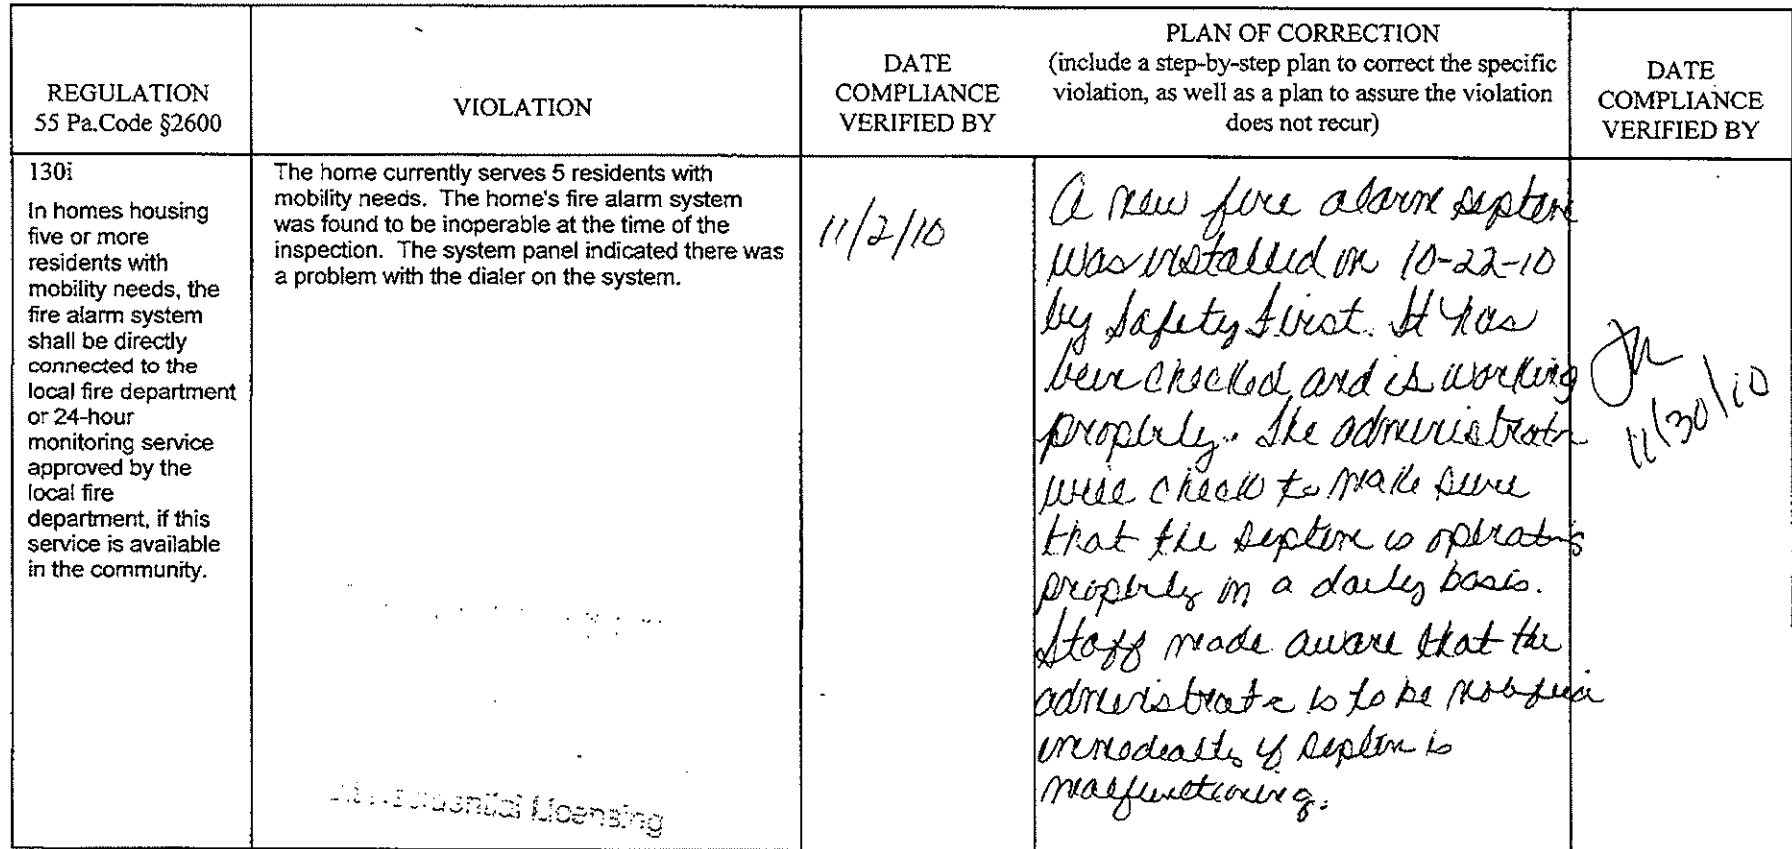 REGULATION
55 Pa.Code §2600
VIOLATION
DATE
COMPLIANCE
VERIFIED BY
PLAN OF CORRECTION
(include a step-by-step plan to correct the specific
violation, as well as a plan to assure the violation
does not recur)
DATE
COMPLIANCE
VERIFIED BY
130i
In homes housing
five or more
residents with
mobility needs, the
fire alarm system
shall be directly
connected to the
local fire department
or 24-hour
monitoring service
approved by the
local fire
department, if this
service is available
in the community.
The home currently serves 5 residents with
mobility needs. The home's fire alarm system
was found to be inoperable at the time of the
inspection. The system panel indicated there was
a problem with the dialer on the system.
11/2/10
A new fire alarm system
was installed on 10-22-10
by Safety First. It has
been checked and is working
properly. The administrator
will check to make sure
that the system is operating
properly on a daily basis.
Staff made aware that the
administrator is to be notified
immediately if system is
malfunctioning.
11/30/10
Licensing